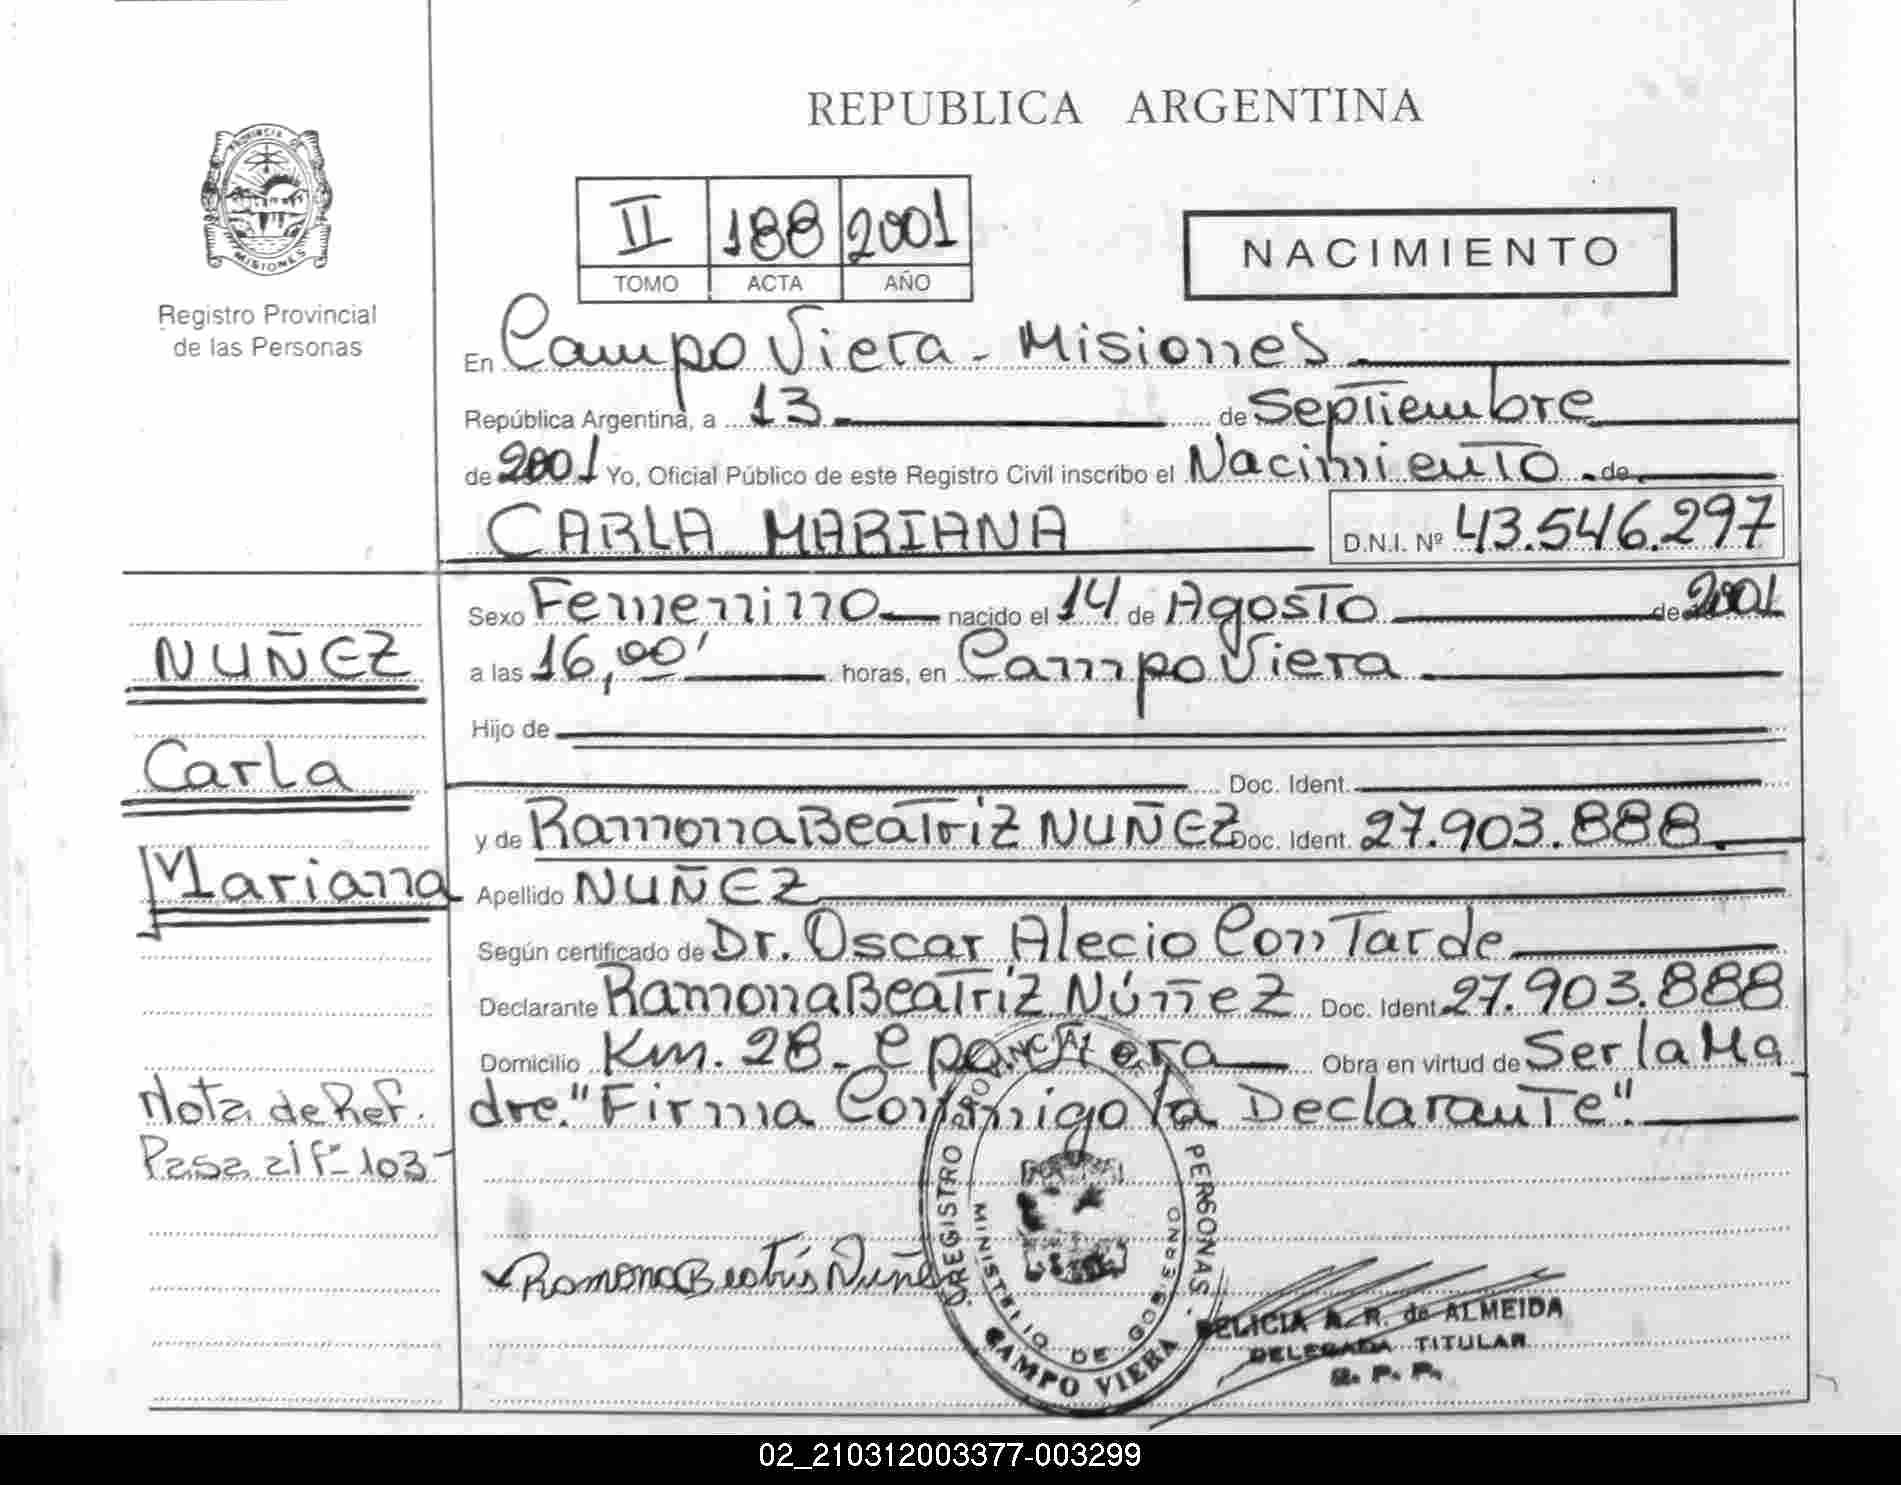 REPUBLICA ARGENTINA
PROVINCIA DE MISIONES
Registro Provincial
de las Personas
II 188 2001
TOMO ACTA AÑO
NACIMIENTO
En Campo Viera - Misiones
República Argentina, a 13 de Septiembre
de 2001 Yo, Oficial Público de este Registro Civil inscribo el Nacimiento de
CARLA MARIANA D.N.I. Nº 43.546.297
Sexo Femenino nacido el 14 de Agosto de 2001
a las 16,00' horas, en Campo Viera
Hijo de
Doc. Ident.
y de Ramona Beatriz NUÑEZ Doc. Ident. 27.903.888.
Apellido NUÑEZ
Según certificado de Dr. Oscar Alecio Contarde
Declarante Ramona Beatriz Núñez Doc. Ident. 27.903.888
Domicilio Km. 28 - Cpo. Viera Obra en virtud de Ser la Ma
dre. "Firma Conmigo la Declarante".
NUÑEZ
Carla
Mariana
Nota de Ref.
Pasa al fº 103
Ramona Beatris Nuñe
REGISTRO PROVINCIAL DE PERSONAS
MINISTERIO DE GOBIERNO
CAMPO VIERA
FELICIA A. R. de ALMEIDA
DELEGADA TITULAR
R. P. P.
02_210312003377-003299